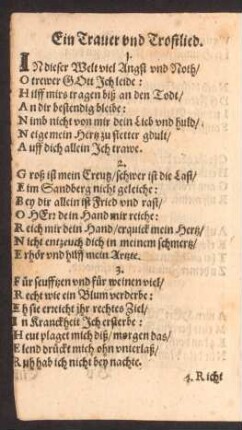 Ein Trauer vnd Trostlied.
1.
INdieser Welt viel Angst vnd Noth/
O trewer GOtt Jch leide:
Hilff mirs tragen biß an den Todt/
An dir bestendig bleibe:
Nimb nicht von mir dein Lieb vnd huld/
Neige mein Hertz zu stetter gdult/
Auff dich allein Jch trawe.
2.
Groß ist mein Creutz/schwer ist die Last/
Eim Sandberg nicht geleiche:
Bey dir allein ist Fried vnd rast/
O HErr dein Hand mir reiche:
Reich mir dein Hand/erquick mein Hertz/
Nicht entzeuch dich in meinem schmertz/
Erhör vnd hilff mein Artzte.
3.
Für seufftzen vnd für weinen viel/
Recht wie ein Blum verderbe:
Eh sie erreicht ihr rechtes Ziel/
In Kranckheit Jch ersterbe:
Heut plaget mich diß/morgen das/
Elend drückt mich ohn vnterlaß/
Ruh hab ich nicht bey nachte.
4. Richt